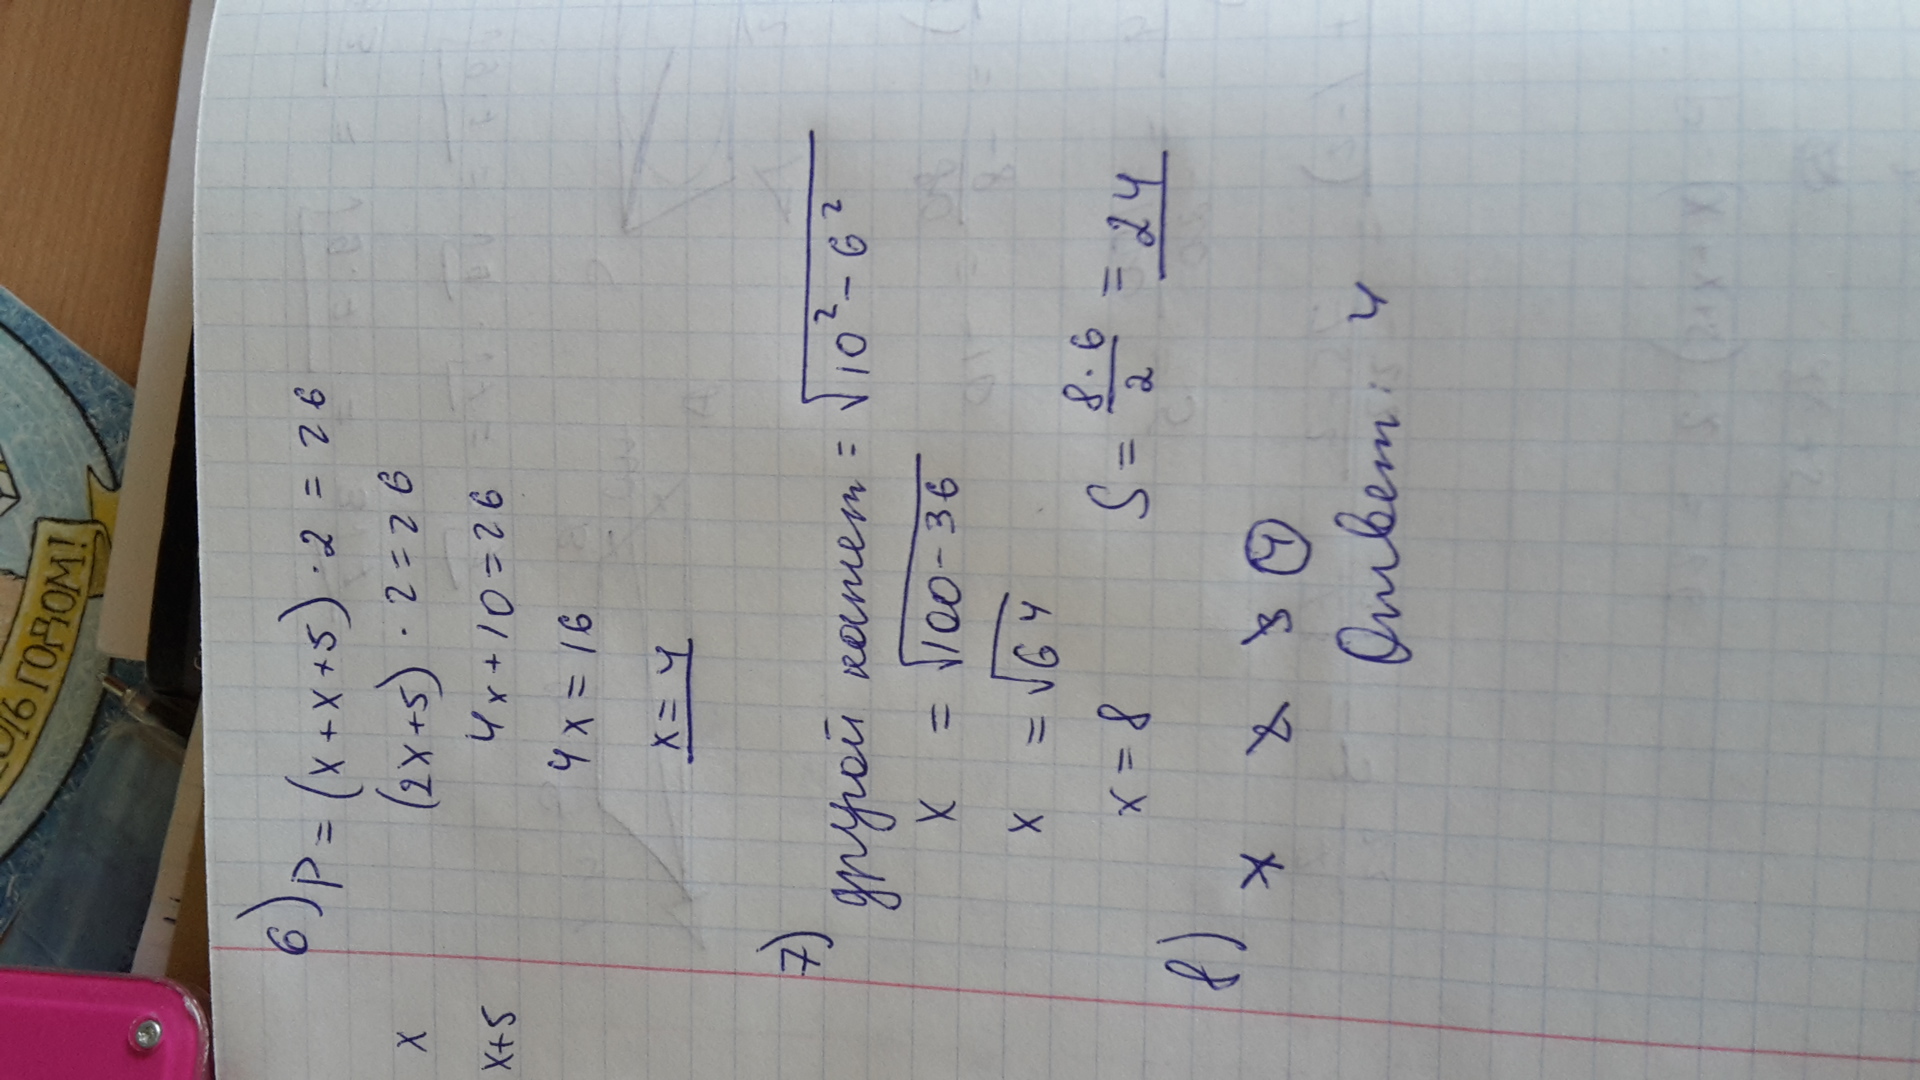 6) P = (x + x + 5) · 2 = 26
x
(2x+5) · 2 = 26
x+5
4x + 10 = 26
4x = 16
x = 4
7) другой катет = √10² - 6²
x = √100 - 36
x = √64
x = 8
S = 8 · 6 / 2 = 24
8) x 2 3 4
Ответ: 4
ГОДОМ!